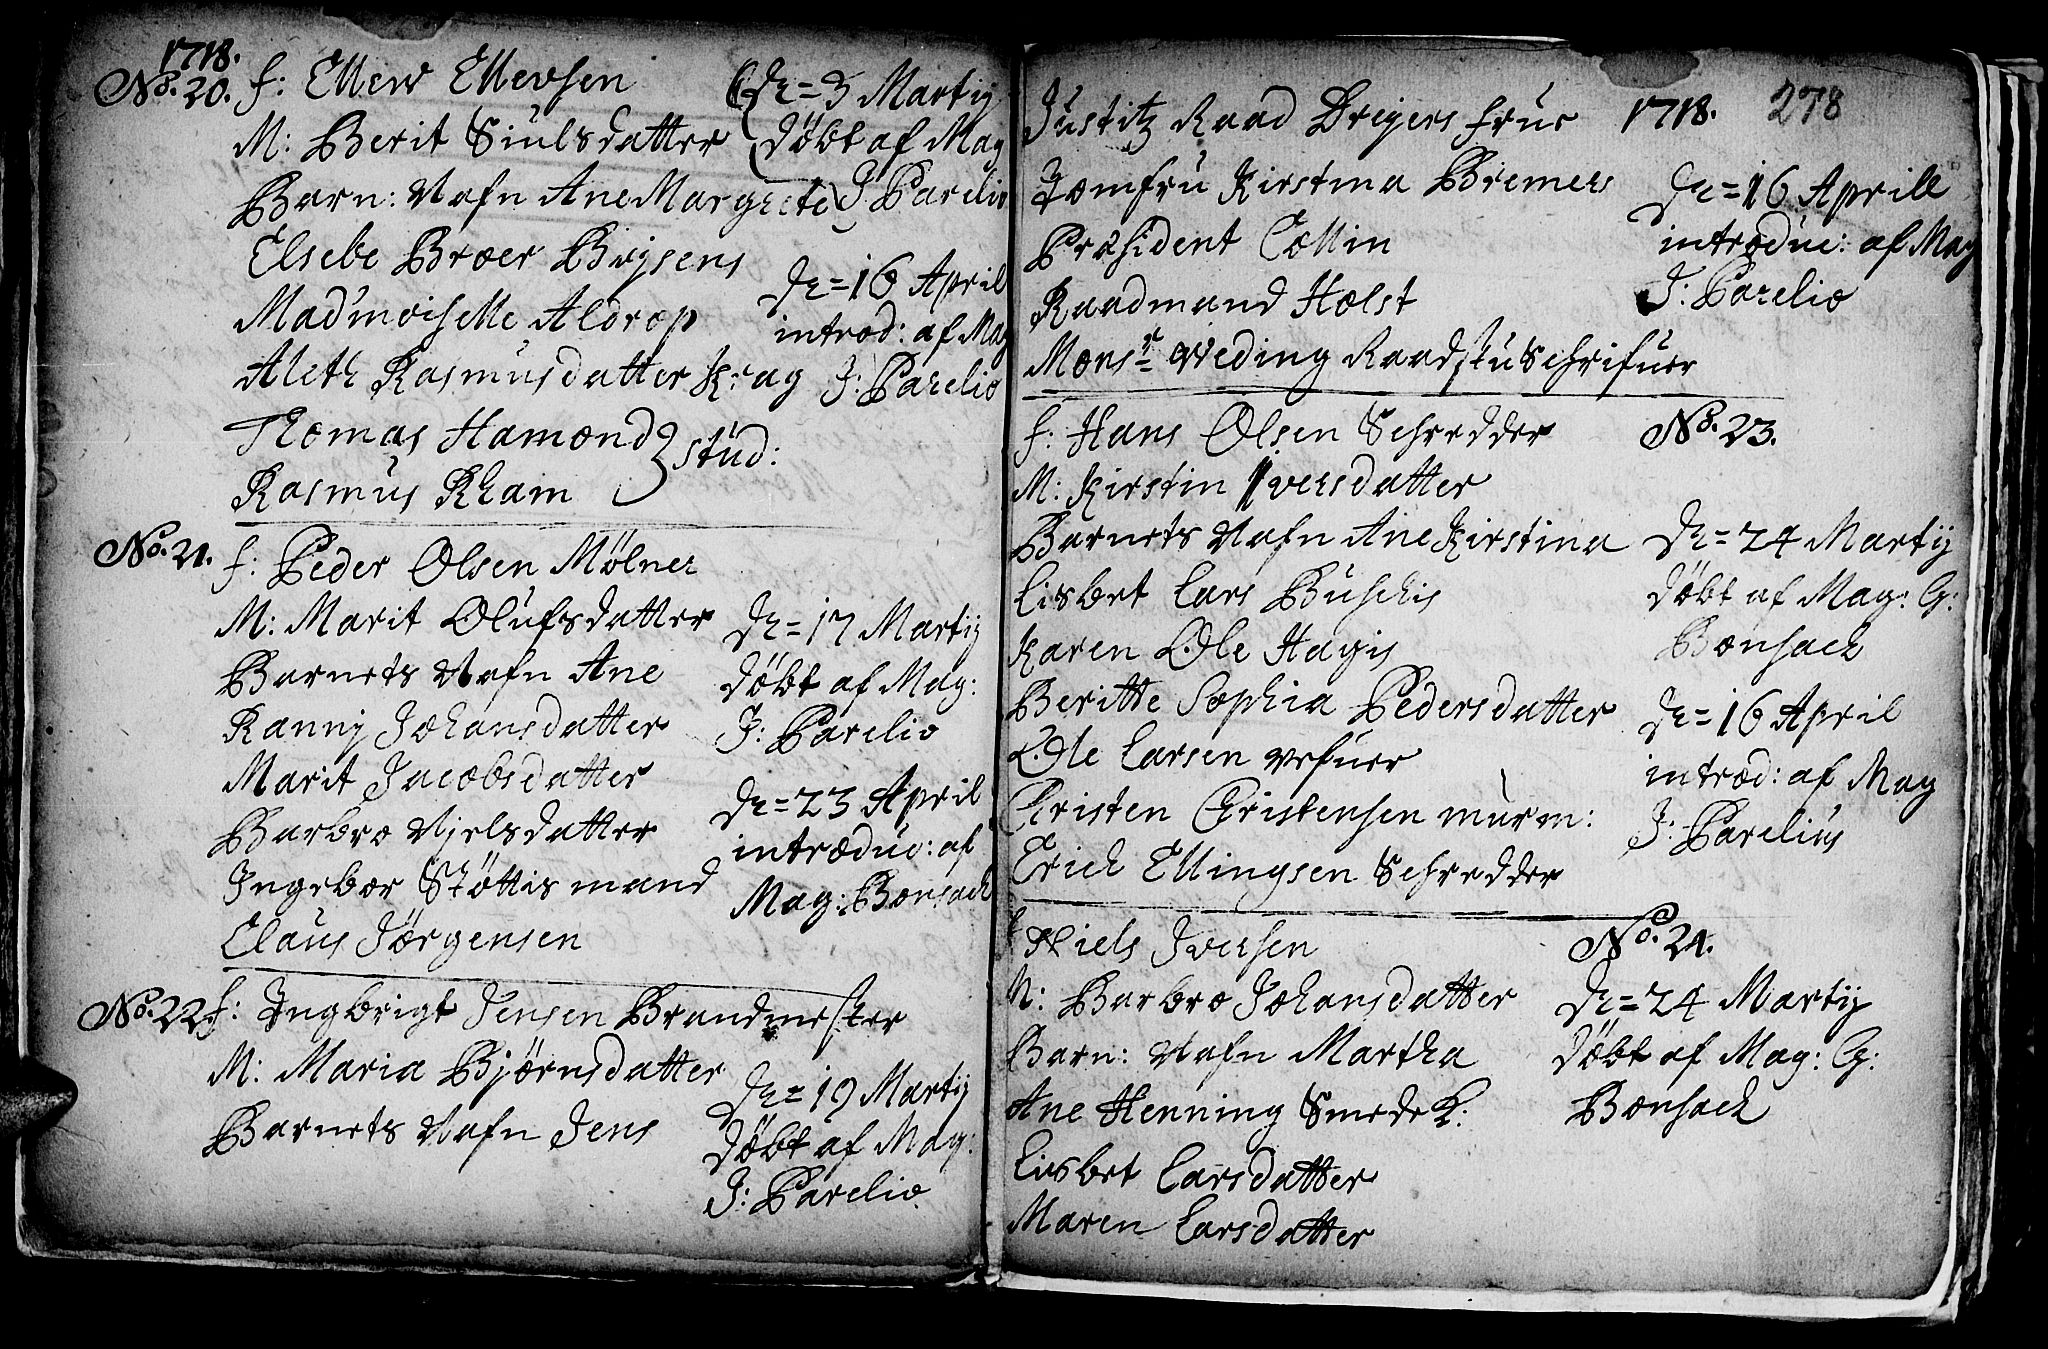 1718.
No. 20. f: Ellew Ellevsen
M: Berit Siulsdatter
Barn: Nafn Ane Margrete
Elsebe Broer Boysens
Mad'moiselle Aldrop
Aleth Rasmusdatter Krag
Thomas Hamond
Rasmus Rham } stud:
D = 3 Martij
döbt af Mag
J: Parelio
D = 16 April
introd: af Mag
J: Parelio
No. 21. f: Peder Olsen Mölner
M: Marit Olufsdatter
Barnets Nafn Ane
Ranny Johansdatter
Marit Jacobsdatter
Barbro Nielsdatter
Ingebor Stöttis mand
Claus Jörgensen
D = 17 Martij
döbt af Mag:
J: Parelio
D = 23 April
introduc: af
Mag: Bonsach
No. 22. f: Ingbrigt Jensen Brandmester
M: Maria Björnsdatter
Barnets Nafn Jens
D = 19 Martij
döbt af Mag:
J: Parelio
1718. 278
Justitz Raad Dreyers frue
Jomfru Kirstina Bremers
Præsident Collin
Raadmand Holst
Monsr Weding Raadstuschrifuer
D = 16 Aprill
introduc: af Mag
J: Parelio
f: Hans Olsen Schredder No. 23.
M: Kirstin Iversdatter
Barnets Nafn Ane Kirstina
Lisbet Lars Buschis
Karen Ole Hagis
Beritte Sophia Pedersdatter
Ole Larsen Vefuer
Christen Christensen murm:
Erich Ellingsen Schredder
D = 24 Martij
döbt af Mag: G:
Bonsach
D = 16 April
introd: af Mag
J: Parelius
f Niels Iversen No. 24.
M: Barbro Johansdatter
Barn: Nafn Martha
Ane Henning Smede K:
Lisbet Larsdatter
Maren Larsdatter
D = 24 Martij
döbt af Mag: G:
Bonsach